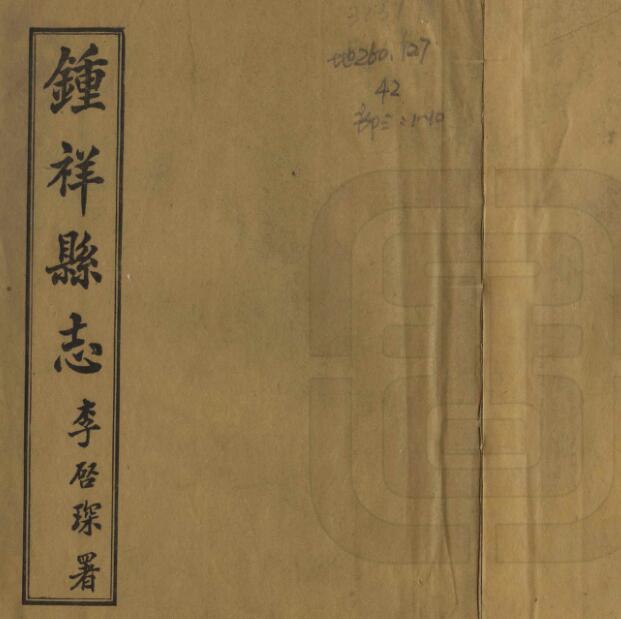 鍾祥縣志
李啓琛署
地260.127
42